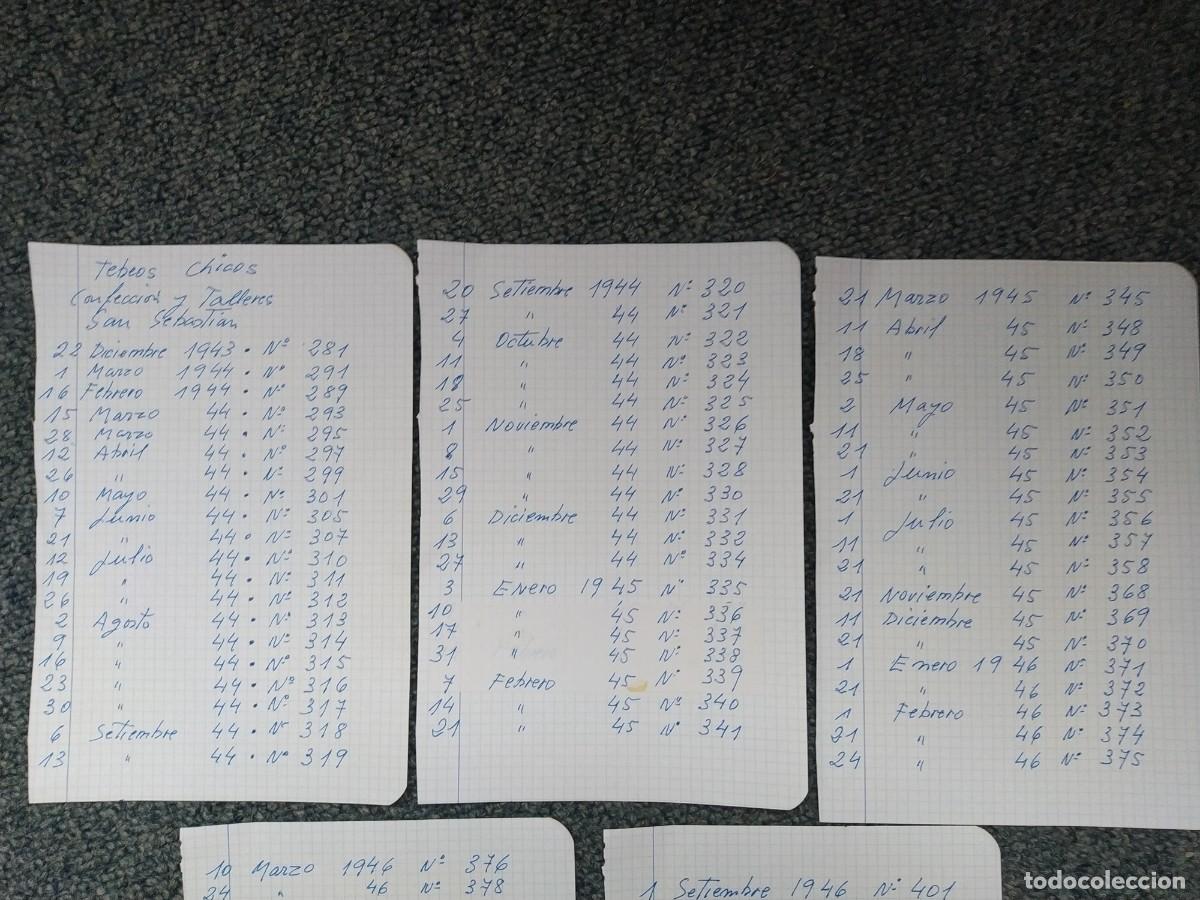 Tebeos Chicos
Confección y Talleres
San Sebastián
22 Diciembre 1943 • Nº 281
1 Marzo 1944 • Nº 291
16 Febrero 1944 • Nº 289
15 Marzo 44 • Nº 293
28 Marzo 44 • Nº 295
12 Abril 44 • Nº 297
26 " 44 • Nº 299
10 Mayo 44 • Nº 301
7 Junio 44 • Nº 305
21 " 44 • Nº 307
12 Julio 44 • Nº 310
19 " 44 • Nº 311
26 " 44 • Nº 312
2 Agosto 44 • Nº 313
9 " 44 • Nº 314
16 " 44 • Nº 315
23 " 44 • Nº 316
30 " 44 • Nº 317
6 Setiembre 44 • Nº 318
13 " 44 • Nº 319
20 Setiembre 1944 Nº 320
27 " 44 Nº 321
4 Octubre 44 Nº 322
11 " 44 Nº 323
18 " 44 Nº 324
25 " 44 Nº 325
1 Noviembre 44 Nº 326
8 " 44 Nº 327
15 " 44 Nº 328
29 " 44 Nº 330
6 Diciembre 44 Nº 331
13 " 44 Nº 332
27 " 44 Nº 334
3 Enero 1945 Nº 335
10 " 45 Nº 336
17 " 45 Nº 337
31 " 45 Nº 338
7 Febrero 45 Nº 339
14 " 45 Nº 340
21 " 45 Nº 341
21 Marzo 1945 Nº 345
11 Abril 45 Nº 348
18 " 45 Nº 349
25 " 45 Nº 350
2 Mayo 45 Nº 351
11 " 45 Nº 352
21 " 45 Nº 353
1 Junio 45 Nº 354
21 " 45 Nº 355
1 Julio 45 Nº 356
11 " 45 Nº 357
21 " 45 Nº 358
21 Noviembre 45 Nº 368
11 Diciembre 45 Nº 369
21 " 45 Nº 370
1 Enero 1946 Nº 371
21 " 46 Nº 372
1 Febrero 46 Nº 373
21 " 46 Nº 374
24 " 46 Nº 375
10 Marzo 1946 Nº 376
24 " 46 Nº 378
1 Setiembre 1946 Nº 401
todocoleccion